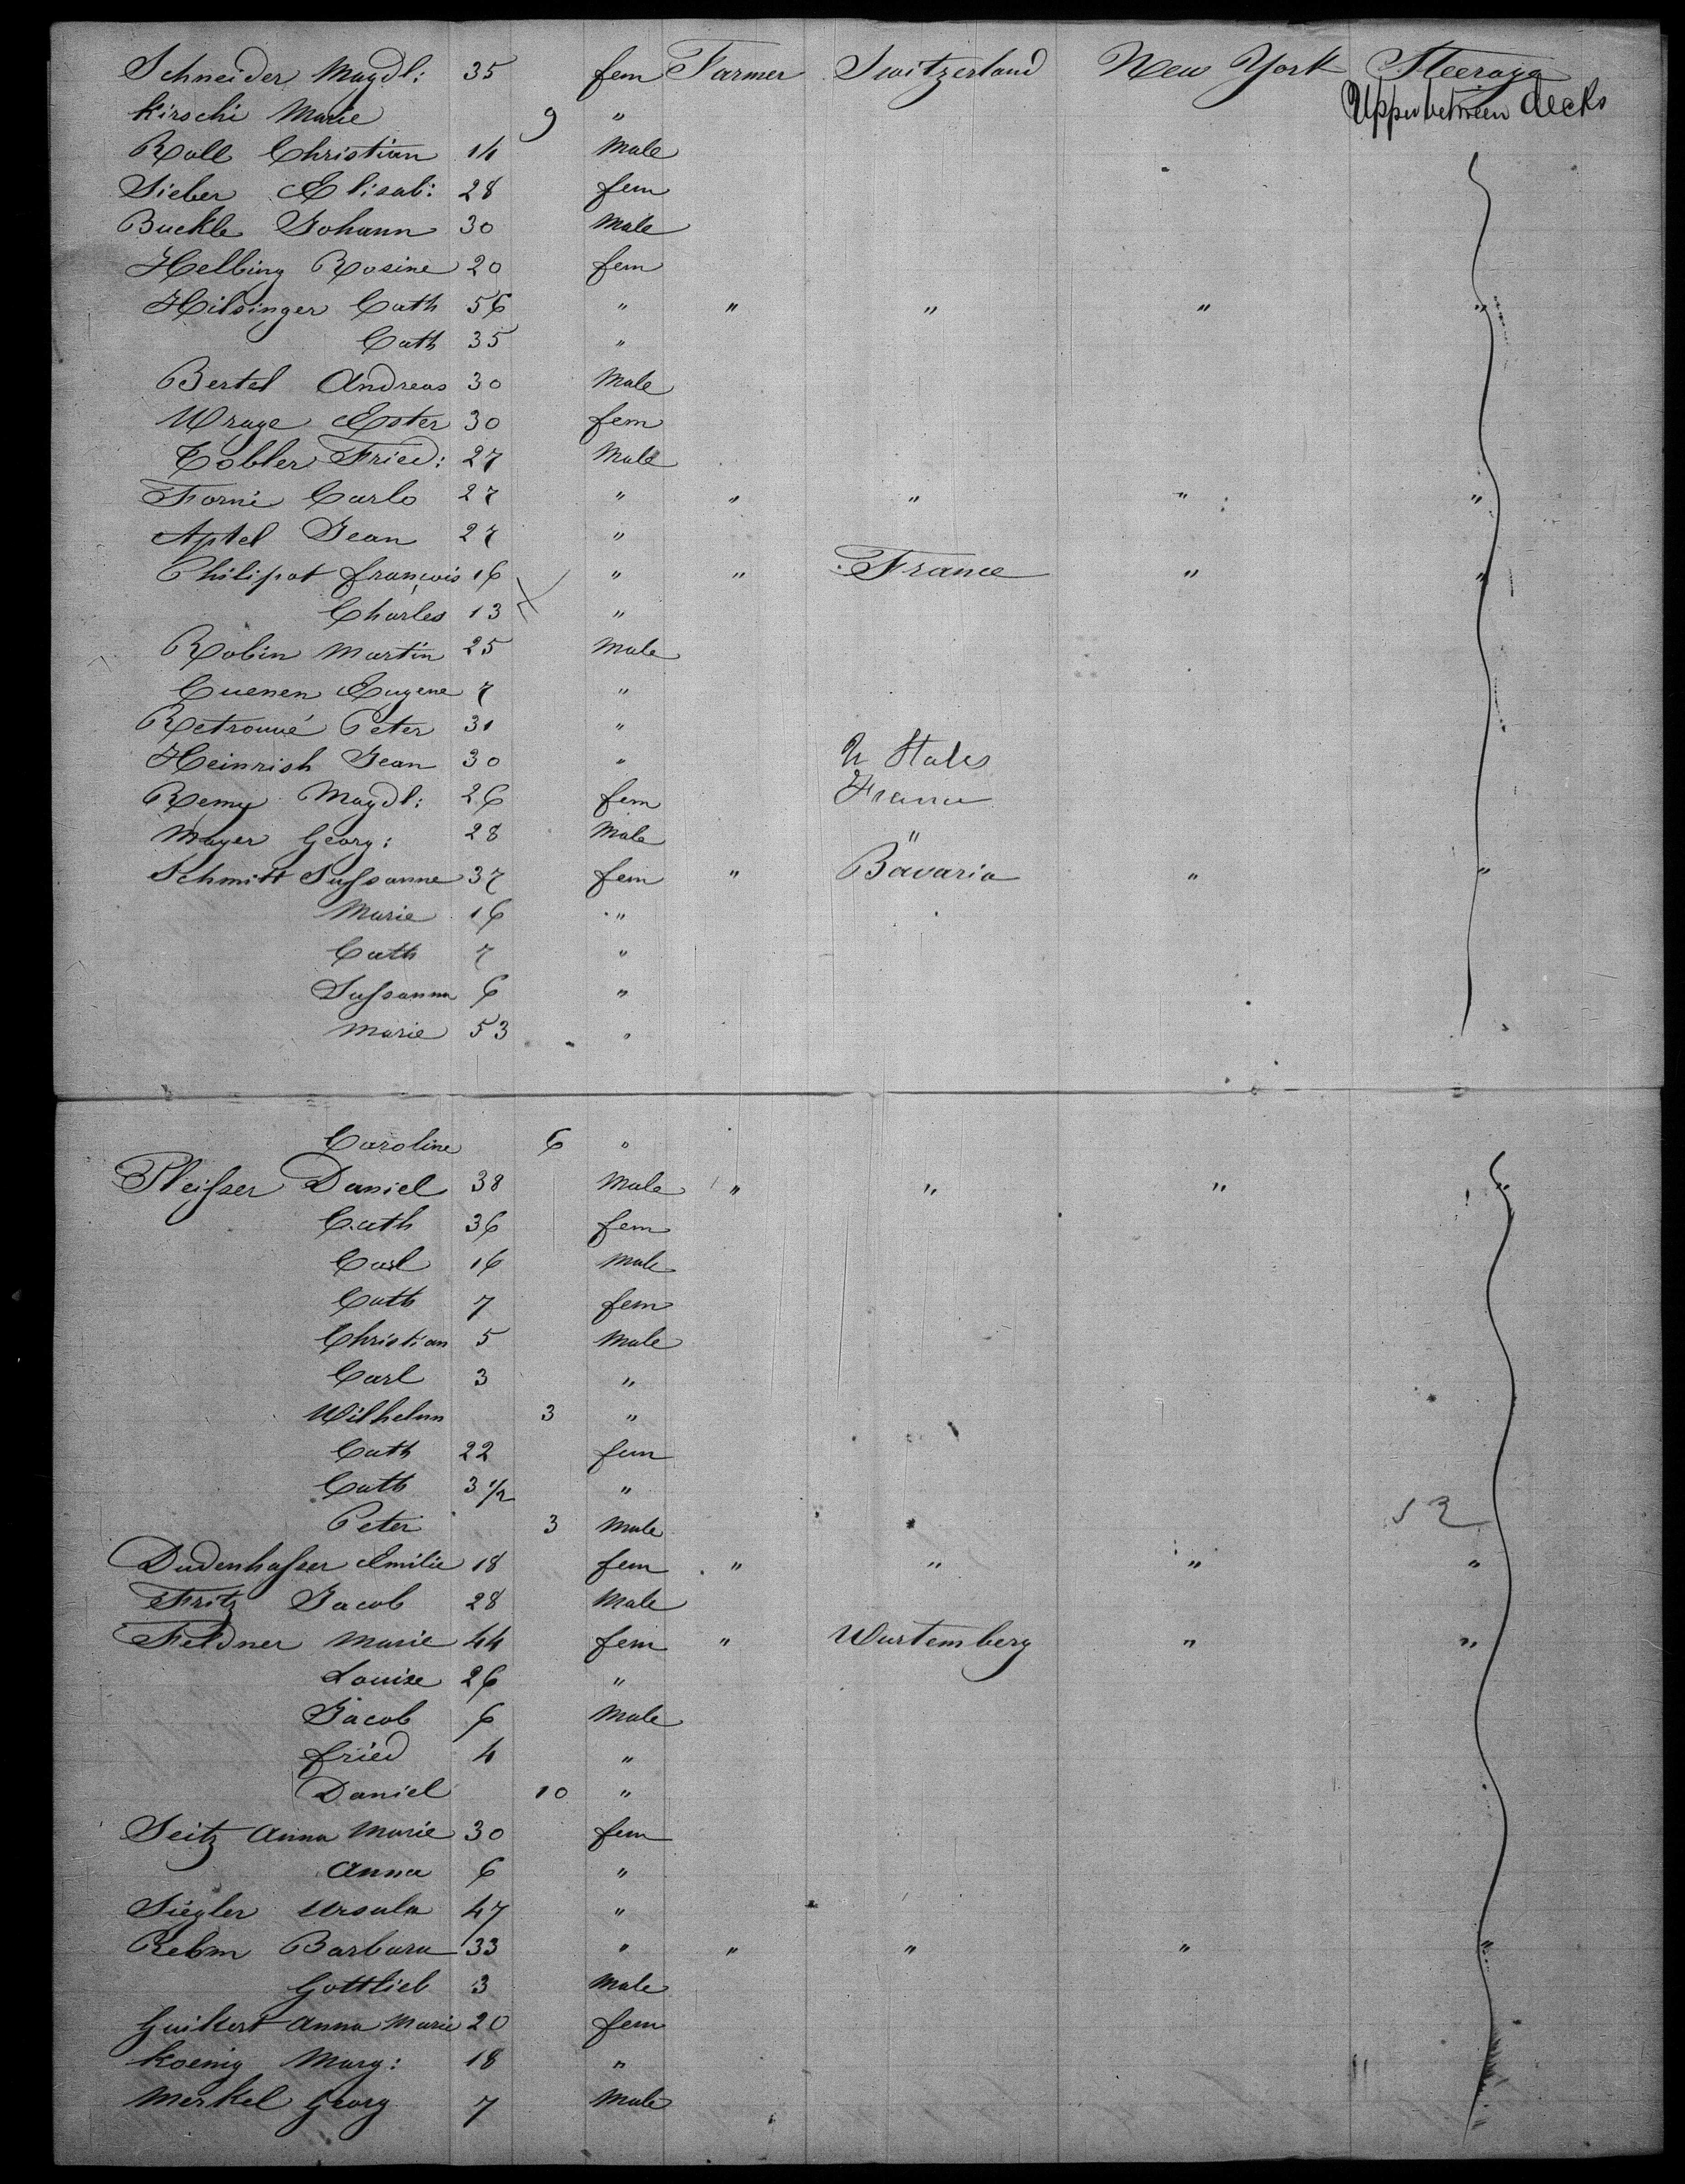 Schneider Magdl: 35 fem Farmer Switzerland New York Steerage
Kirschi Marie 9 " Upper between decks
Roll Christian 14 Male
Sieber Elisab: 28 fem
Buckle Johann 30 Male
Helbing Rosine 20 fem
Hilsinger Cath 56 " " " " "
Cath 35 "
Bertel Andreas 30 Male
Wrage Ester 30 fem
Tobler Fried: 27 Male
Forni Carlo 27 " " " " "
Aptel Jean 27 "
Philipot françois 16 " " France " "
Charles 13 "
Robin Martin 25 Male
Cuenen Eugene 7 "
Retrouvé Peter 31 "
Heinrish Jean 30 " U States
Remy Magdl: 26 fem France
Mayer Georg: 28 Male "
Schmitt Sussanne 37 fem " Bavaria " "
Marie 16 "
Cath 7 "
Sussanna 6 "
Marie 53 "
Caroline 6 "
Pleisser Daniel 38 Male " " " "
Cath 36 fem
Carl 16 Male
Cath 7 fem
Christian 5 Male
Carl 3 "
Wilhelm 3 "
Cath 22 fem
Cath 3 1/2 "
Peter 3 Male 52
Dudenhasser Emilie 18 fem " " " "
Fritz Jacob 28 Male
Feldner Marie 44 fem " Wurtemberg " "
Louise 26 "
Jacob 6 Male
fried 4 "
Daniel 10 "
Seitz Anna Marie 30 fem
Anna 6 "
Siegler Ursula 47 "
Rebm Barbara 33 " " " " "
Gottlieb 3 Male
Guikert Anna Marie 20 fem
Koenig Marg: 18 "
Merkel Georg 7 Male